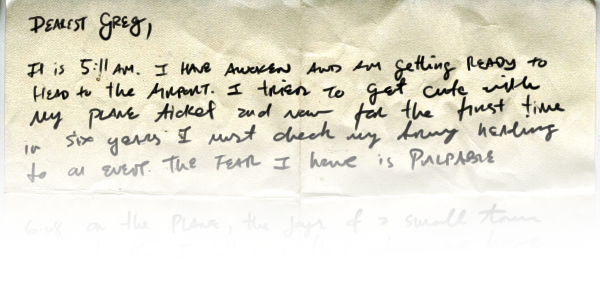 DEAREST GREG,
It is 5:11 AM. I HAVE AWOKEN AND AM getting READY to
HEAD to the AIRPORT. I TRIED TO get cute with
my PLANE ticket and now for the first time
in six years I must check my bag heading
to an EVENT. THE FEAR I have is PALPABLE
6:08 on the PLANE, the joys of a small town